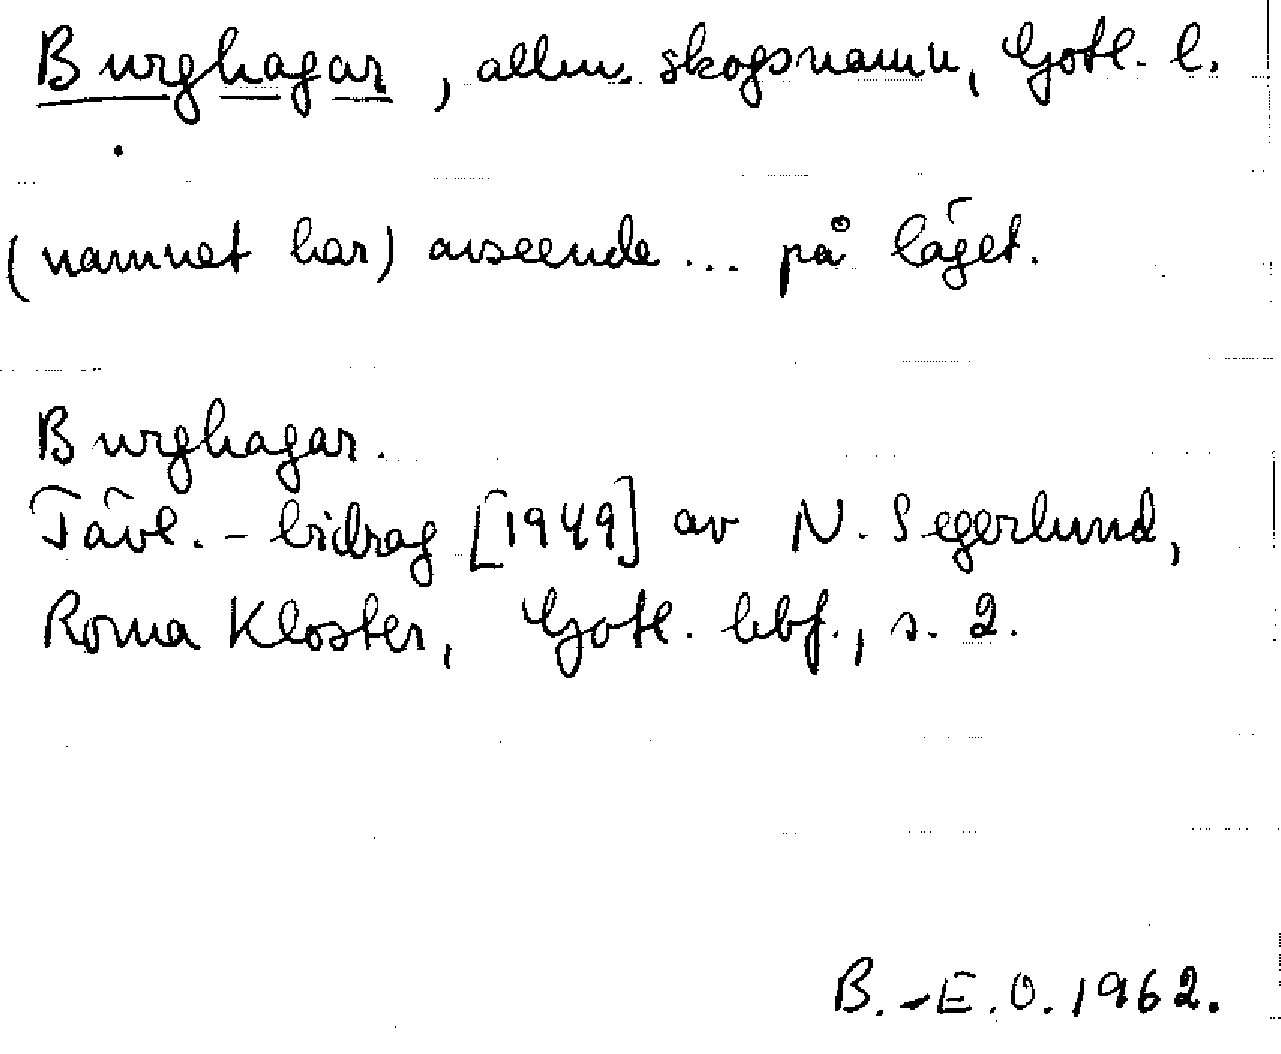 Burghagar, allm. skogsnamn, Gotl. l.
(namnet har) avseende ... på läget.
Burghagar.
Tävl.-bidrag [1949] av N. Segerlund,
Roma Kloster, Gotl. hbf., s. 2.
B.-E.O. 1962.